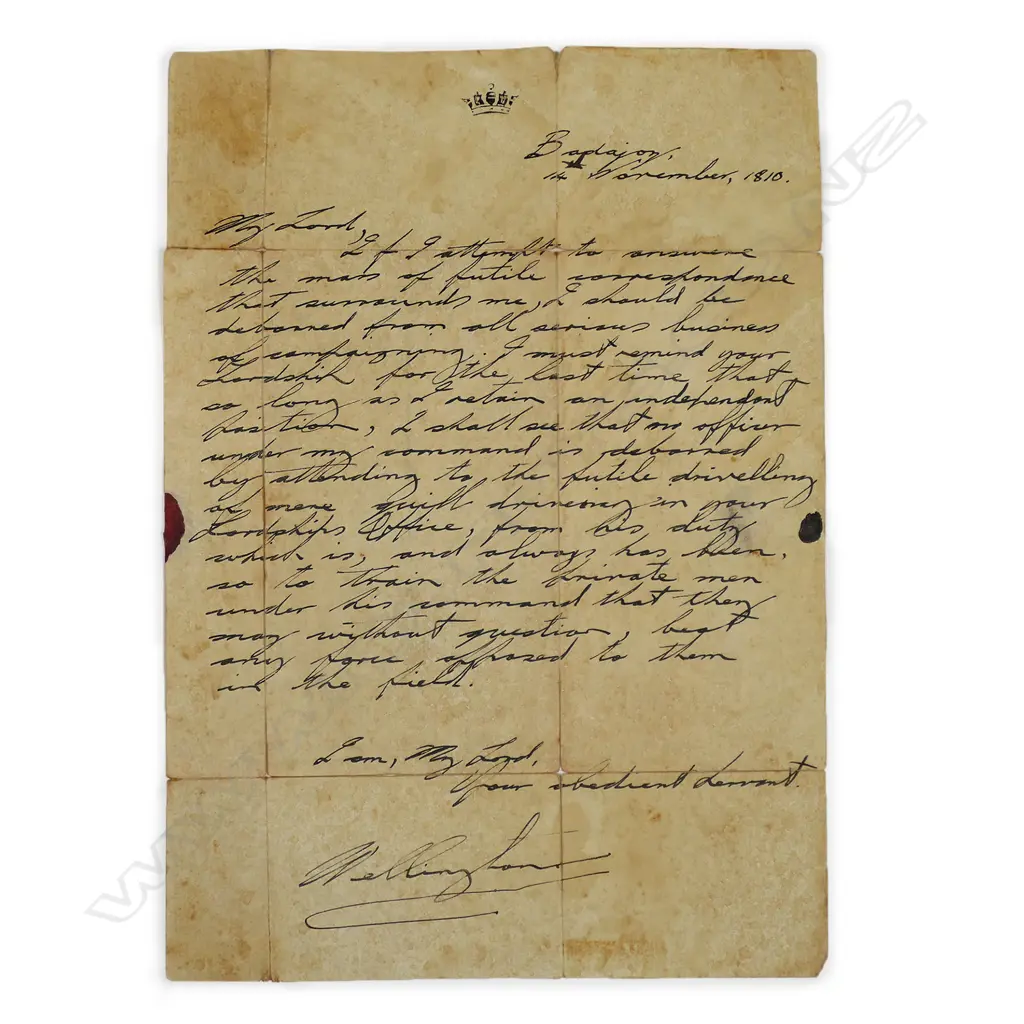 Badajoz,
14 November, 1810.
My Lord,
If I attempt to answere
the mass of futile correspondence
that surrounds me, I should be
debarred from all serious business
of campaigning. I must remind your
Lordship for the last time that
so long as I retain an independant
position, I shall see that no officer
under my command is debarred
by attending to the futile drivelling
of mere quill driving in your
Lordships Office, from his duty
which is, and always has been,
so to train the private men
under his command that they
may without question, beat
any force opposed to them
in the field.
I am, My Lord,
Your obedient Servant.
Wellington